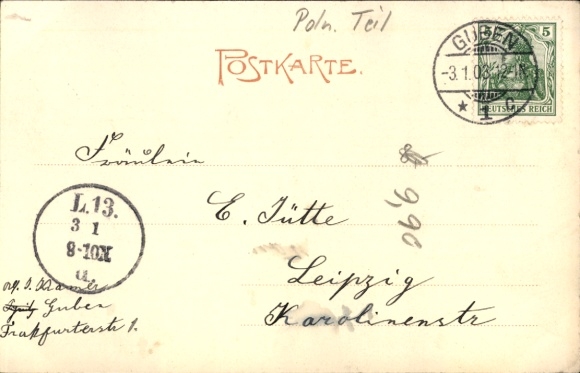 Poln. Teil
POSTKARTE.
GUBEN
-3.1.03.12-1N.
* 1 c
5
DEUTSCHES REICH
Fräulein
9,90
E. Jütte
Leipzig
Karolinenstr
L.13.
3 1
8-10N
a.
Guben
Frakfurterstr 1.